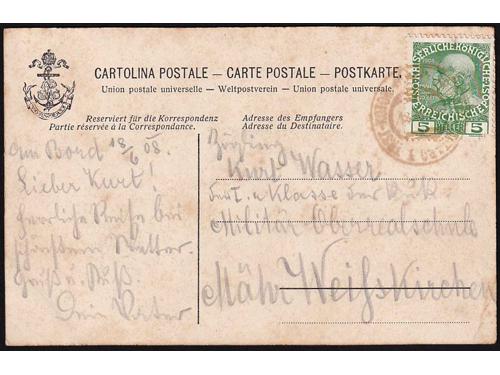 CARTOLINA POSTALE — CARTE POSTALE — POSTKARTE.
Union postale universelle — Weltpostverein — Unione postale universale.
Reserviert für die Korrespondenz
Partie réservée à la Correspondance.
Adresse des Empfangers
Adresse du Destinataire.
KAISERLICHE KÖNIGLICHE
ÖSTERREICHISCHE POST
5 HELLER 5
Am Bord 18/6 08.
Lieber Kurt!
Herrliche Reise bei
schönstem Wetter.
Gruß u. Kuß.
Dein Vater
Zögling
Kurt Wasser
des I. Klasse der k.u.k.
Militär-Oberrealschule
Mähr. Weißkirchen